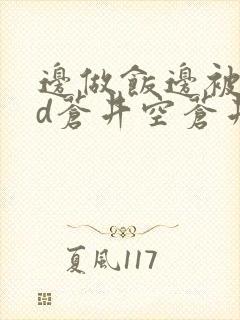 邊做飯邊被
d蒼井空蒼井
夏風117